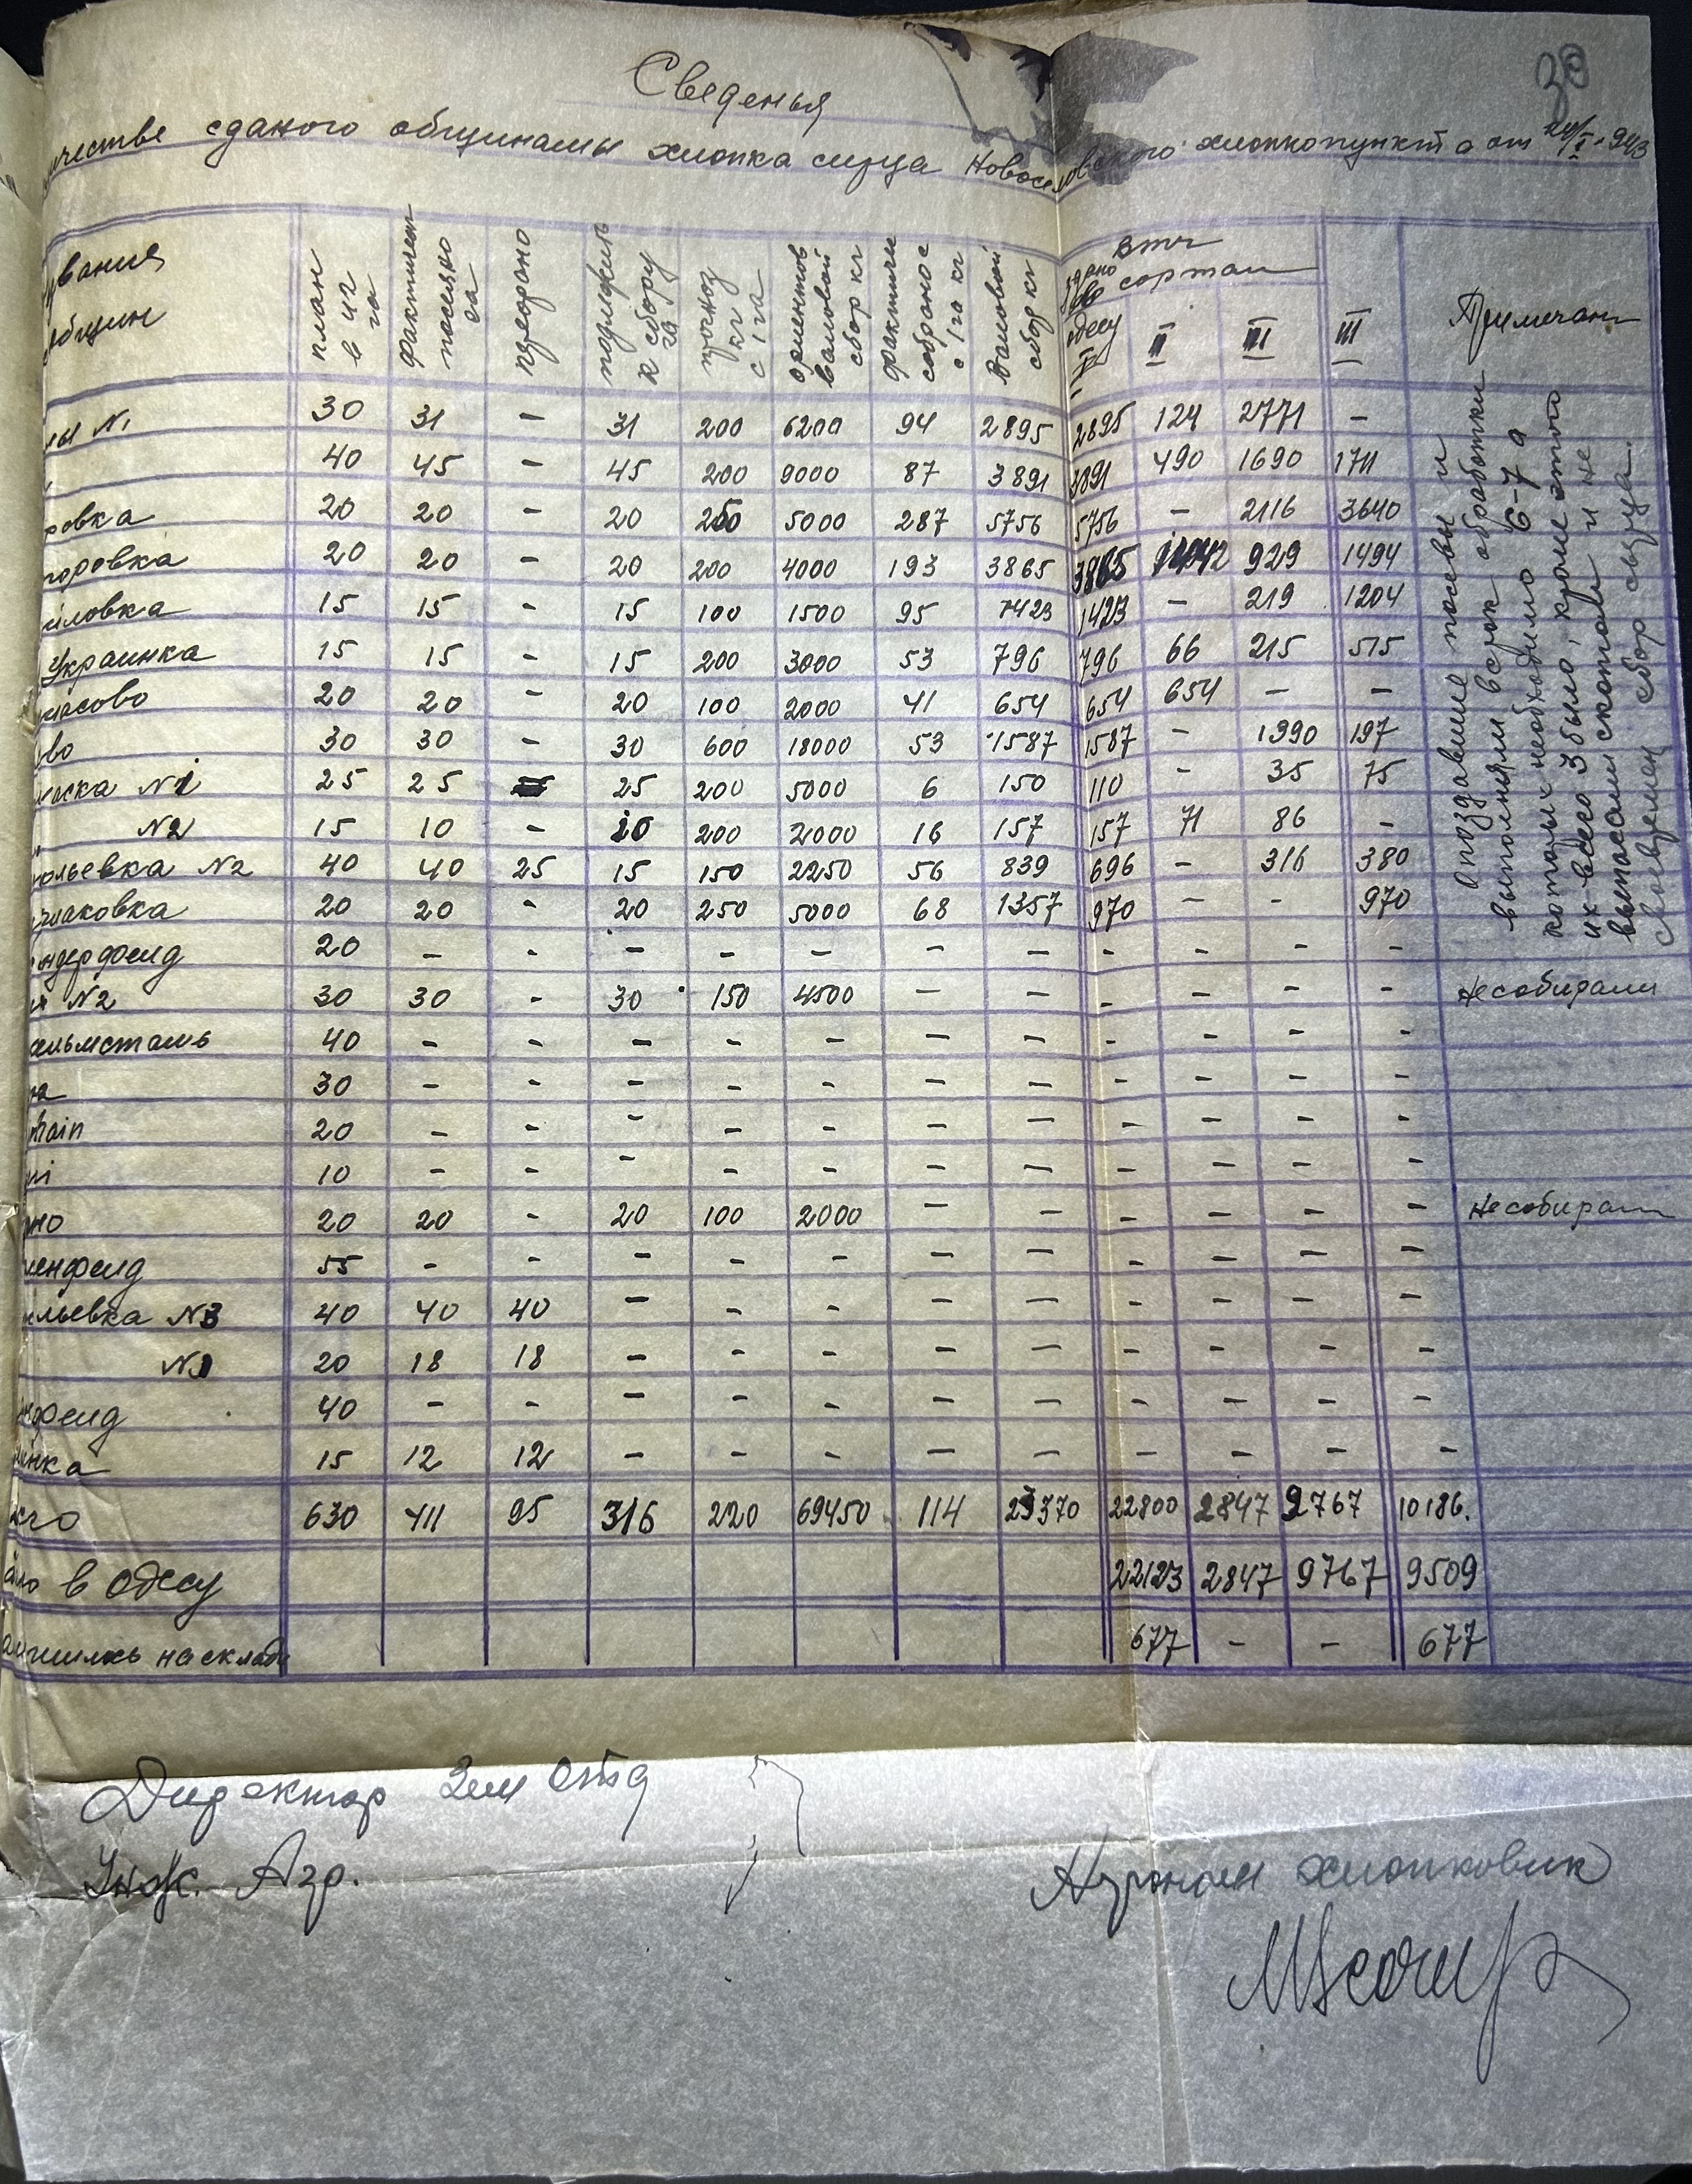 Сведенья
сданого общинамы хлопка сирца Новоселовского хлопкопункта от 24/I-943
общин
план в иг га
фактичеси посеяно га
пересорано
подлежить к сбору га
прогноз кг с 1 га
ориентов валовой сбор кг
фактиче собраное с 1 га кг
валовой сбор кг
здано в Одесу
в т ч сортам
II III III
Примечан
ны N1 30 31 - 31 200 6200 94 2895 2895 124 2771 -
" 40 45 - 45 200 9000 87 3891 3891 490 1690 1711
ровка 20 20 - 20 250 5000 287 5756 5756 - 2116 3640
горовка 20 20 - 20 200 4000 193 3865 3865 1442 929 1494
йловка 15 15 - 15 100 1500 95 1423 1423 - 219 1204
Украинка 15 15 - 15 200 3000 53 796 796 66 215 515
насово 20 20 - 20 100 2000 41 654 654 654 - -
ово 30 30 - 30 600 18000 53 1587 1587 - 1390 197
наска N1 25 25 25 200 5000 6 150 110 - 35 75
" N2 15 10 - 10 200 2000 16 157 157 71 86 -
польевка N2 40 40 25 15 150 2250 56 839 696 - 316 380
рчаковка 20 20 - 20 250 5000 68 1357 970 - - 970
ндерфелд 20 - - - - - - - - - - -
я N2 30 30 - 30 150 4500 - - - - - - Не собирали
ельмсталь 40 - - - - - - - - - - -
ра 30 - - - - - - - - - - -
hain 20 - - - - - - - - - - -
ni 10 - - - - - - - - - - -
но 20 20 - 20 100 2000 - - - - - - Не собирали
менфелд 55 - - - - - - - - - - -
льевка N3 40 40 40 - - - - - - - - -
N1 20 18 18 - - - - - - - - -
нфелд 40 - - - - - - - - - - -
инка 15 12 12 - - - - - - - - -
его 630 411 95 316 220 69450 114 23370 22800 2847 9767 10186.
в Одесу 22123 2847 9767 9509
на складе 677 - - 677
Опоздавшие посевы и
выполняли в срок обработки
которых необходимо 6-7 а
их всего 3 было, кроме этого
выпасали скотом и не
своевремен сбор сырца.
Директор Зем Отд
Инж. Агр.
Агроном хлопковик